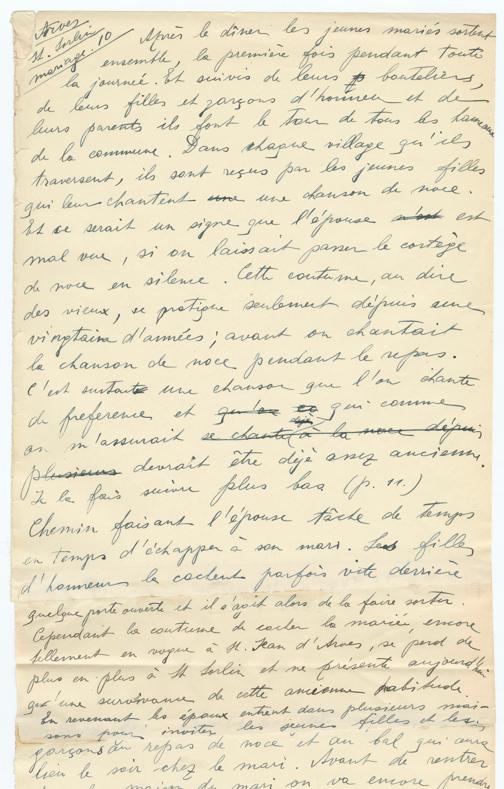 Arves
St. Sorlin
mariage. 10
Après le dîner les jeunes mariés sortent
ensemble, la première fois pendant toute
la journée. Et suivis de leurs bouteliers,
de leurs filles et garçons d'honneur et de
leurs parents ils font le tour de tous les hameaux
de la commune. Dans chaque village qu'ils
traversent, ils sont reçus par les jeunes filles
qui leur chantent une une chanson de noce.
Et ce serait un signe que l'épouse n'est est
mal vue, si on laissait passer le cortège
de noce en silence. Cette coutume, au dire
des vieux, se pratique seulement dépuis une
vingtaine d'années; avant on chantait
la chanson de noce pendant le repas.
C'est surtout une chanson que l'on chante
de preference et qu'on qui comme
on m'assurait se chante déjà à la noce dépuis
plusieurs devrait être déjà assez ancienne.
Je la fais suivre plus bas (p. 11.)
Chemin faisant l'épouse tâche de temps
en temps d'échapper à son mari. Les filles
d'honneur la cachent parfois vite derrière
quelque porte ouverte et il s'agit alors de la faire sortir.
Cependant la coutume de cacher la mariée, encore
tellement en vogue à St. Jean d'Arves, se perd de
plus en plus à St Sorlin et ne présente aujourd'hui
qu'une survivance de cette ancienne habitude.
En revenant les époux entrent dans plusieurs mai-
sons pour inviter les jeunes filles et les
garçons au repas de noce et au bal qui aura
lieu le soir chez le mari. Avant de rentrer
maison du mari on va encore prendre